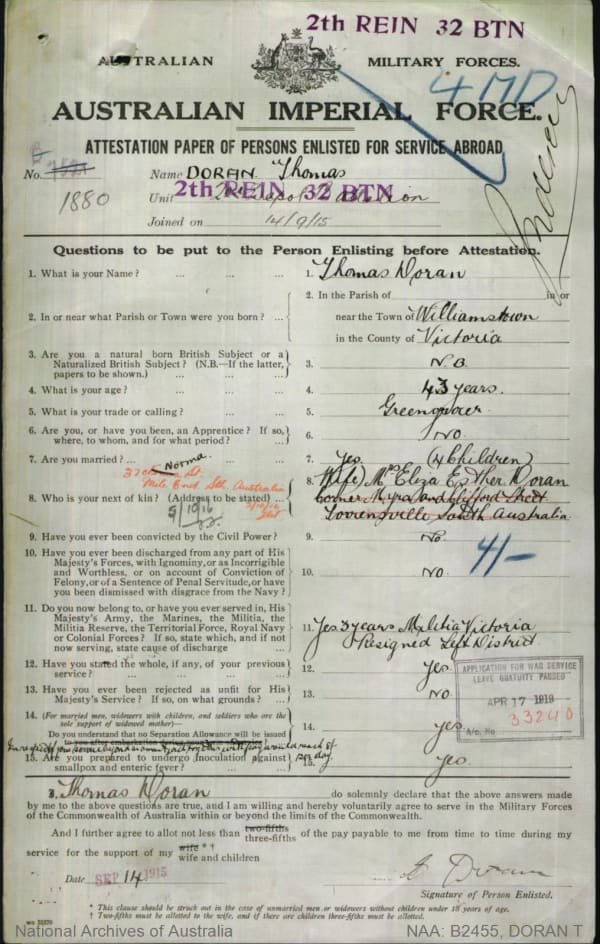 2th REIN 32 BTN
AUSTRALIAN MILITARY FORCES.
4 MD
AUSTRALIAN IMPERIAL FORCE.
ATTESTATION PAPER OF PERSONS ENLISTED FOR SERVICE ABROAD
No. 1880
Name DORAN Thomas
Unit 2nd Depot Battalion
2th REIN 32 BTN
Joined on 14/9/15
Questions to be put to the Person Enlisting before Attestation.
1. What is your Name? ... ... ... 1. Thomas Doran
2. In or near what Parish or Town were you born? ... 2. In the Parish of in or
near the Town of Williamstown
in the County of Victoria
3. Are you a natural born British Subject or a
Naturalized British Subject? (N.B.—If the latter,
papers to be shown.) ... ... 3. N.B.
4. What is your age? ... ... ... 4. 43 years.
5. What is your trade or calling? ... ... 5. Greengrocer
6. Are you, or have you been, an Apprentice? If so,
where, to whom, and for what period? ... 6. No.
7. Are you married? ... 7. Yes. (4 Children)
Norma
37 St.
Mile End Sth. Australia
8. Who is your next of kin? (Address to be stated) ... 8. (Wife) Mrs Eliza Esther Doran
corner Myra and Clifford Street
Torrensville South Australia
5/10/16
9. Have you ever been convicted by the Civil Power? 9. No.
4/-
10. Have you ever been discharged from any part of His
Majesty's Forces, with Ignominy, or as Incorrigible
and Worthless, or on account of Conviction of
Felony, or of a Sentence of Penal Servitude, or have
you been dismissed with disgrace from the Navy? 10. No.
11. Do you now belong to, or have you ever served in, His
Majesty's Army, the Marines, the Militia, the
Militia Reserve, the Territorial Force, Royal Navy
or Colonial Forces? If so, state which, and if not
now serving, state cause of discharge ... 11. Yes 3 years Militia Victoria
Resigned Left District
12. Have you stated the whole, if any, of your previous
service? ... ... ... 12. Yes.
13. Have you ever been rejected as unfit for His
Majesty's Service? If so, on what grounds? ... 13. No
APPLICATION FOR WAR SERVICE
LEAVE GRATUITY PASSED
APR 17 1919
A/c. No 33240
14. (For married men, widowers with children, and soldiers who are the
sole support of widowed mother)—
Do you understand that no Separation Allowance will be issued
14. yes.
15. Are you prepared to undergo inoculation against
smallpox and enteric fever? ... ... 15. Yes.
per day.
I, Thomas Doran do solemnly declare that the above answers made
by me to the above questions are true, and I am willing and hereby voluntarily agree to serve in the Military Forces
of the Commonwealth of Australia within or beyond the limits of the Commonwealth.
And I further agree to allot not less than two-fifths three-fifths of the pay payable to me from time to time during my
service for the support of my wife * † wife and children
Date SEP 14 1915
Signature of Person Enlisted.
* This clause should be struck out in the case of unmarried men or widowers without children under 18 years of age.
† Two-fifths must be allotted to the wife, and if there are children three-fifths must be allotted.
National Archives of Australia
NAA: B2455, DORAN T